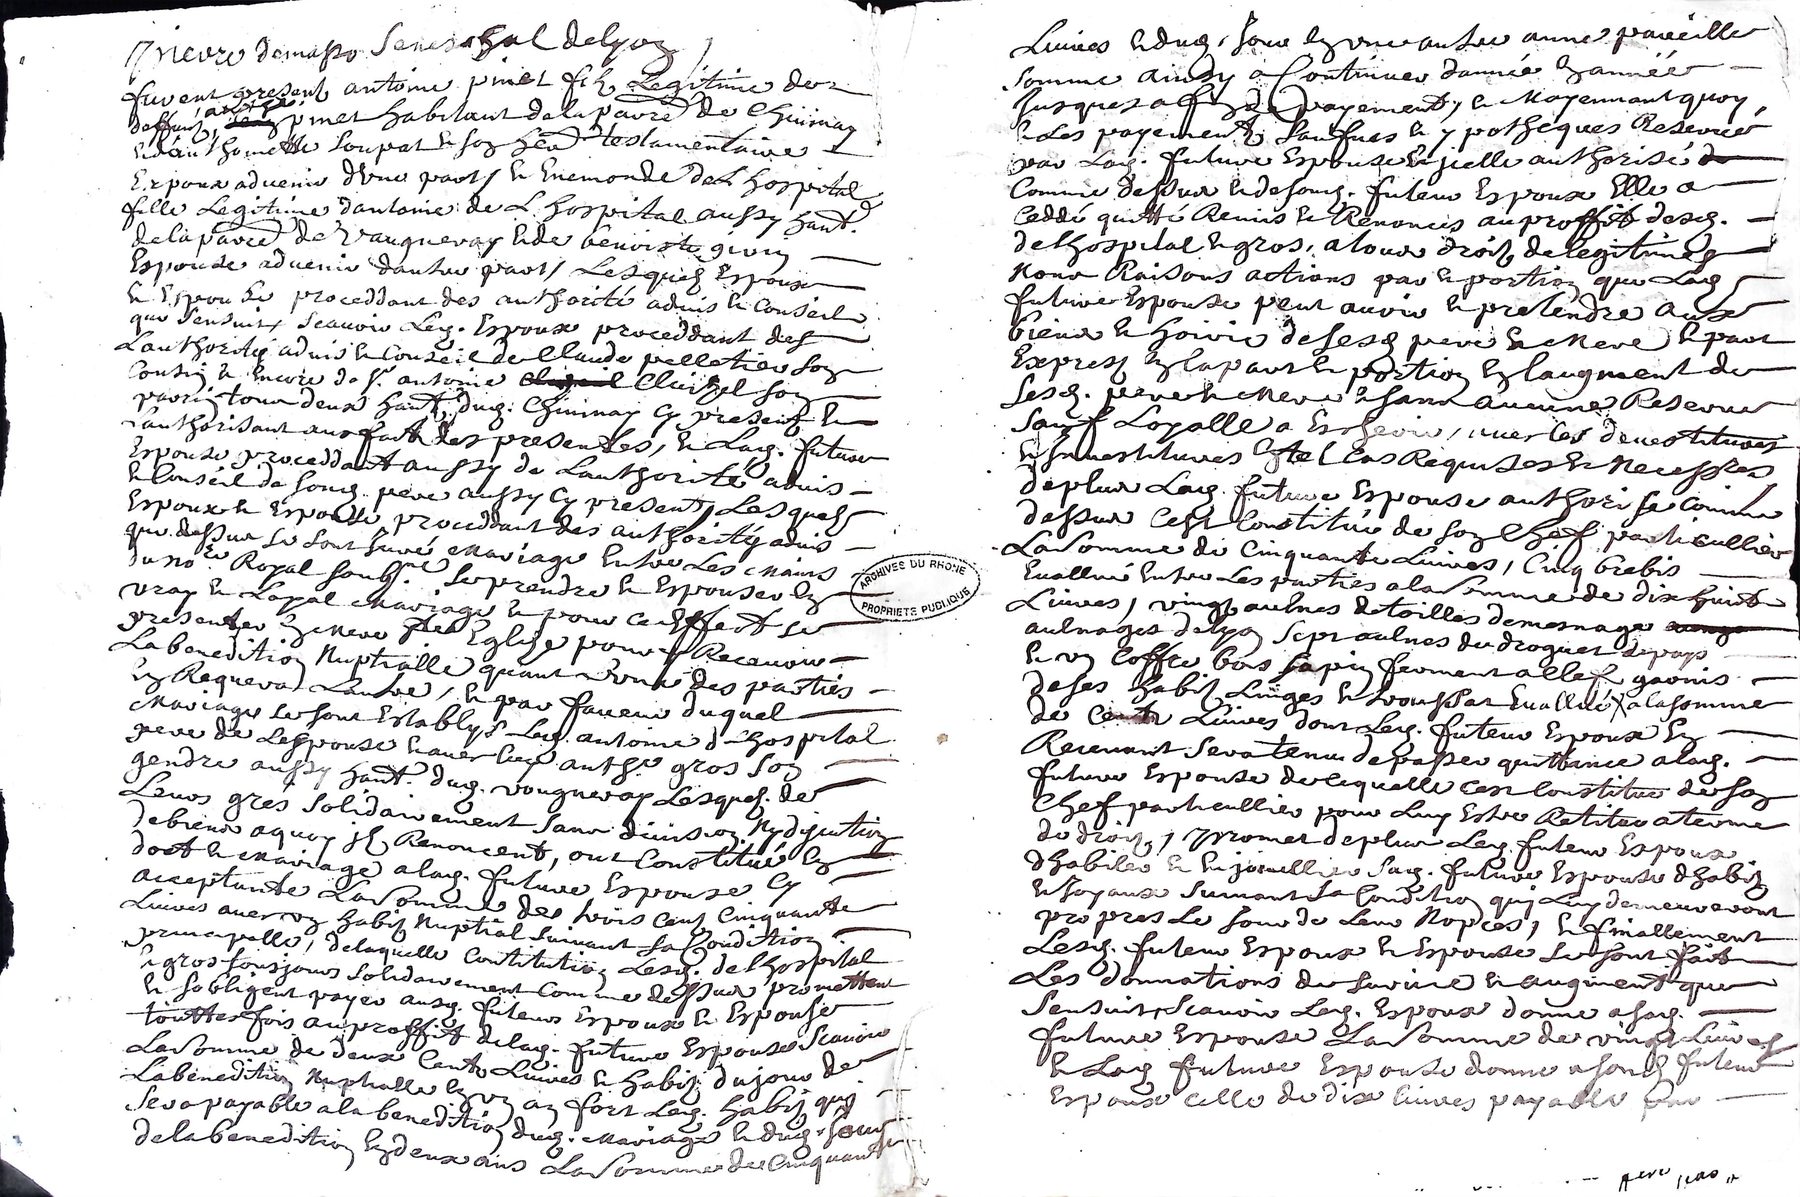 Pierre demasso Seneschal delyon
furent presents antoine pinet filz Legitime de
deffunt pinet habitant dela parr de Chiuinay
thomette Loupat & son her testamentaire
Espoux aduenir dVne part, & Enemonde deL hospital
fille Legitime dantoine de L hospital aussy hant.
dela parr de Vaugneray & de benoiste giuin
Espouse aduenir dautre part, Lesquelz Espoux
& Espouse proceddant des authorité aduis & Conseil
que sensuit, scauoir Led. Espoux proceddant de
Lauthorité aduis & Conseil de Claude pelletier son
Cousin & Encore de sr. antoine Claizel son
parrin tous deux hant. dud. Chiuinay Cy presents &
Lauthorisant au fait des presentes, & Lad. future
Espouse proceddant aussy de Lauthorité aduis
& Conseil de sond. pere aussy Cy present, Lesquels
Espoux & Espouse proceddant des authorité aduis
que dessus se sont Juré Mariage Entre Les Mains
du no.re Royal soubs.né se prendre & Espouser En
vray & Loyal Mariage & pour Ce Effect se
presenter En Mere Ste Eglise pour y Receuoir
La benedition Nuptialle quant L'vne des parties
En Requera Lautre, & par faueur duquel
Mariage se sont Establys Led. antoine d Lhospital
pere de Lespouse & auec luy anth.e gros son
gendre aussy hant. dud. vougneray Lesquelz de
Leurs gres solidairement sans diuision Ny discution
de biens a quoy ilz Renoncent, ont Constitué En
doct & Mariage a lad. future Espouse Cy
acceptante La somme de trois Cent Cinquante
Liures auec vn habit Nuptial suiuant sa Condition
principalle, delaquelle Constitution Lesd. del hospital
& gros tousjours solidairement Comme dessus promettent
& sobligent payer ausd. futeurs Espoux & Espouse
touttesfois au proffit de lad. future Espouse Scauoir
La somme de deux Cents Liures & habitz du jour de
La benedition Nuptialle En vn an fort Led. habit qui
sera payable a la benedition dud. Mariage & dud. jour
de la benedition En deux ans La somme de Cinquante
Liures & dud. jour En vne autre année pareille
somme ainsy a Continuer dannée En année
Jusques a fin de payement, & Moyennant quoy,
& Les payements saufues & ypotheques Reseruée
par Lad. future Espouse & jcelle authorisé
Comme dessus & de sond. futeur Espoux Elle a
ceddé quitté Remis & Renoncé au proffit desd.
de lhospital & gros, a tous droitz de legitimes
Noms Raisons actions part & portion que Lad.
future Espouse peut auoir & pretendre aux
biens & hoirie de sesd pere & Mere & par
Expres En la part & portion En laugment de
sesd. pere & Mere & sans aucune Reserue
sauf Loyalle Escheute, auec les deuestitures
& Jnuestitures En tel Cas Requises & Necess.res
deplus Lad. future Espouse authorisée Comme
dessus Cest Constituée de son Chef particullier
La somme de Cinquante Liures, Cinq brebis
Euallué Entre Les parties a la somme de dix huit
Liures, vingt aulnes de toilles demesnage
aulnages de lyon sept aulnes du droguet de pays
& vn Coffre bois sapin fermant a clef garnis
de ses habitz Linges & troussat Euallué a la somme
de Cent Liures dont Led. futeur Espoux En
Receuant sera tenu de passer quittance a lad.
future Espouse de laquelle Cest Constitue de son
Chef particullier pour Luy Estre Restitue a terme
de droit, promet de plus Led. futeur Espoux
dhabiller & Enjoueller sad. future Espouse dhabitz
& joyaux suiuant sa Condition qui Luy demeureront
propres Le jour de Leur Nopces, & finallement
Lesd. futeur Espoux & Espouse se sont fait
Les donnations de suruie & augment que
sensuit, Scauoir Led. Espoux donne a sad.
future Espouse La somme de vingt Liures
& Lad. future Espouse donne a sond. futeur
Espoux Celle de dix liures payable
ARCHIVES DU RHONE
PROPRIETE PUBLIQUE